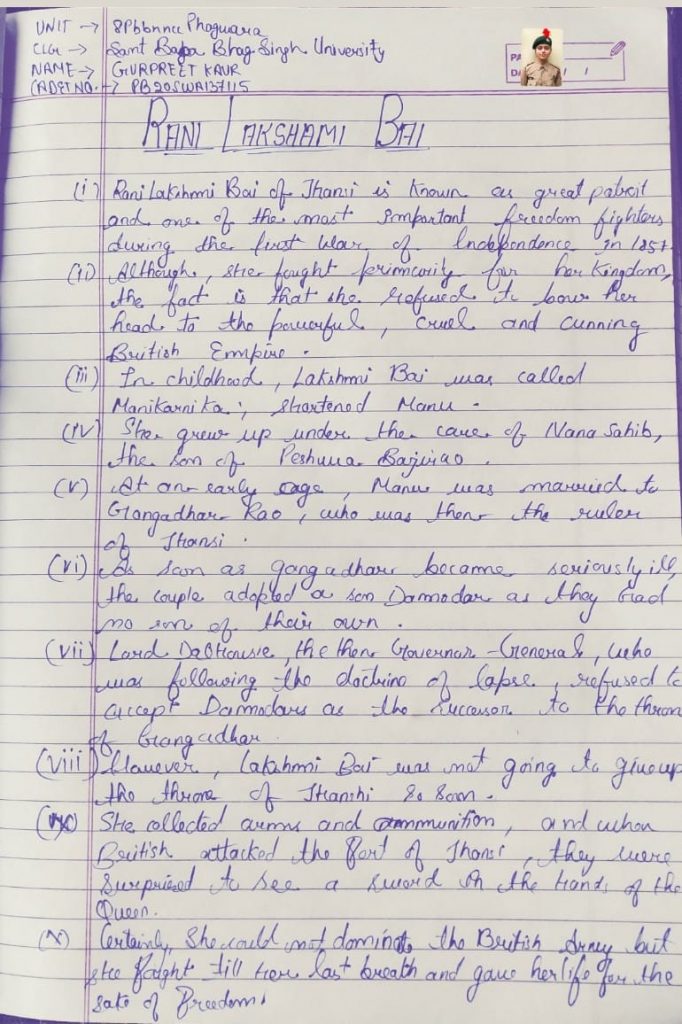 UNIT → 8Pbbnncc Phagwara
CLG → Sant Baba Bhag Singh University
NAME → GURPREET KAUR
CADET NO. → PB20SWA137115
PA
DA / /
RANI LAKSHAMI BAI
(i) Rani Lakshmi Bai of Jhansi is known as great patriot
and one of the most important freedom fighters
during the first War of Independence in 1857.
(ii) Although, she fought primarily for her Kingdom,
the fact is that she refused to bow her
head to the powerful, cruel and cunning
British Emmpire.
(iii) In childhood, Lakshmi Bai was called
Manikarnika, shortened Manu.
(iv) She grew up under the care of Nana Sahib,
the son of Peshwa Bajirao.
(v) At an early age, Manu was married to
Gangadhar Rao, who was then the ruler
of Jhansi.
(vi) As soon as gangadhar became seriously ill,
the couple adopted a son Damodar as they had
no son of their own.
(vii) Lord Dalhousie, the then Governor-General, who
was following the doctrine of lapse, refused to
accept Damodars as the successor to the thron
of Gangadhar.
(viii) However, Lakshmi Bai was not going to give up
the throne of Jhanshi so soon.
She collected arms and ammunition, and when
British attacked the Fort of Jhansi, they were
surprised to see a sword in the hands of the
Queen.
(x) Certainly, She could not dominate the British Army but
she faught till her last breath and gave her life for the
sake of Freedom.